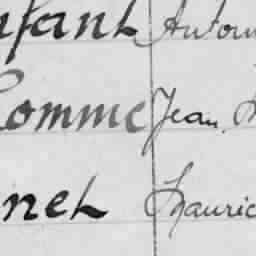 nfant Antoin
Comme Jean
net Mauric